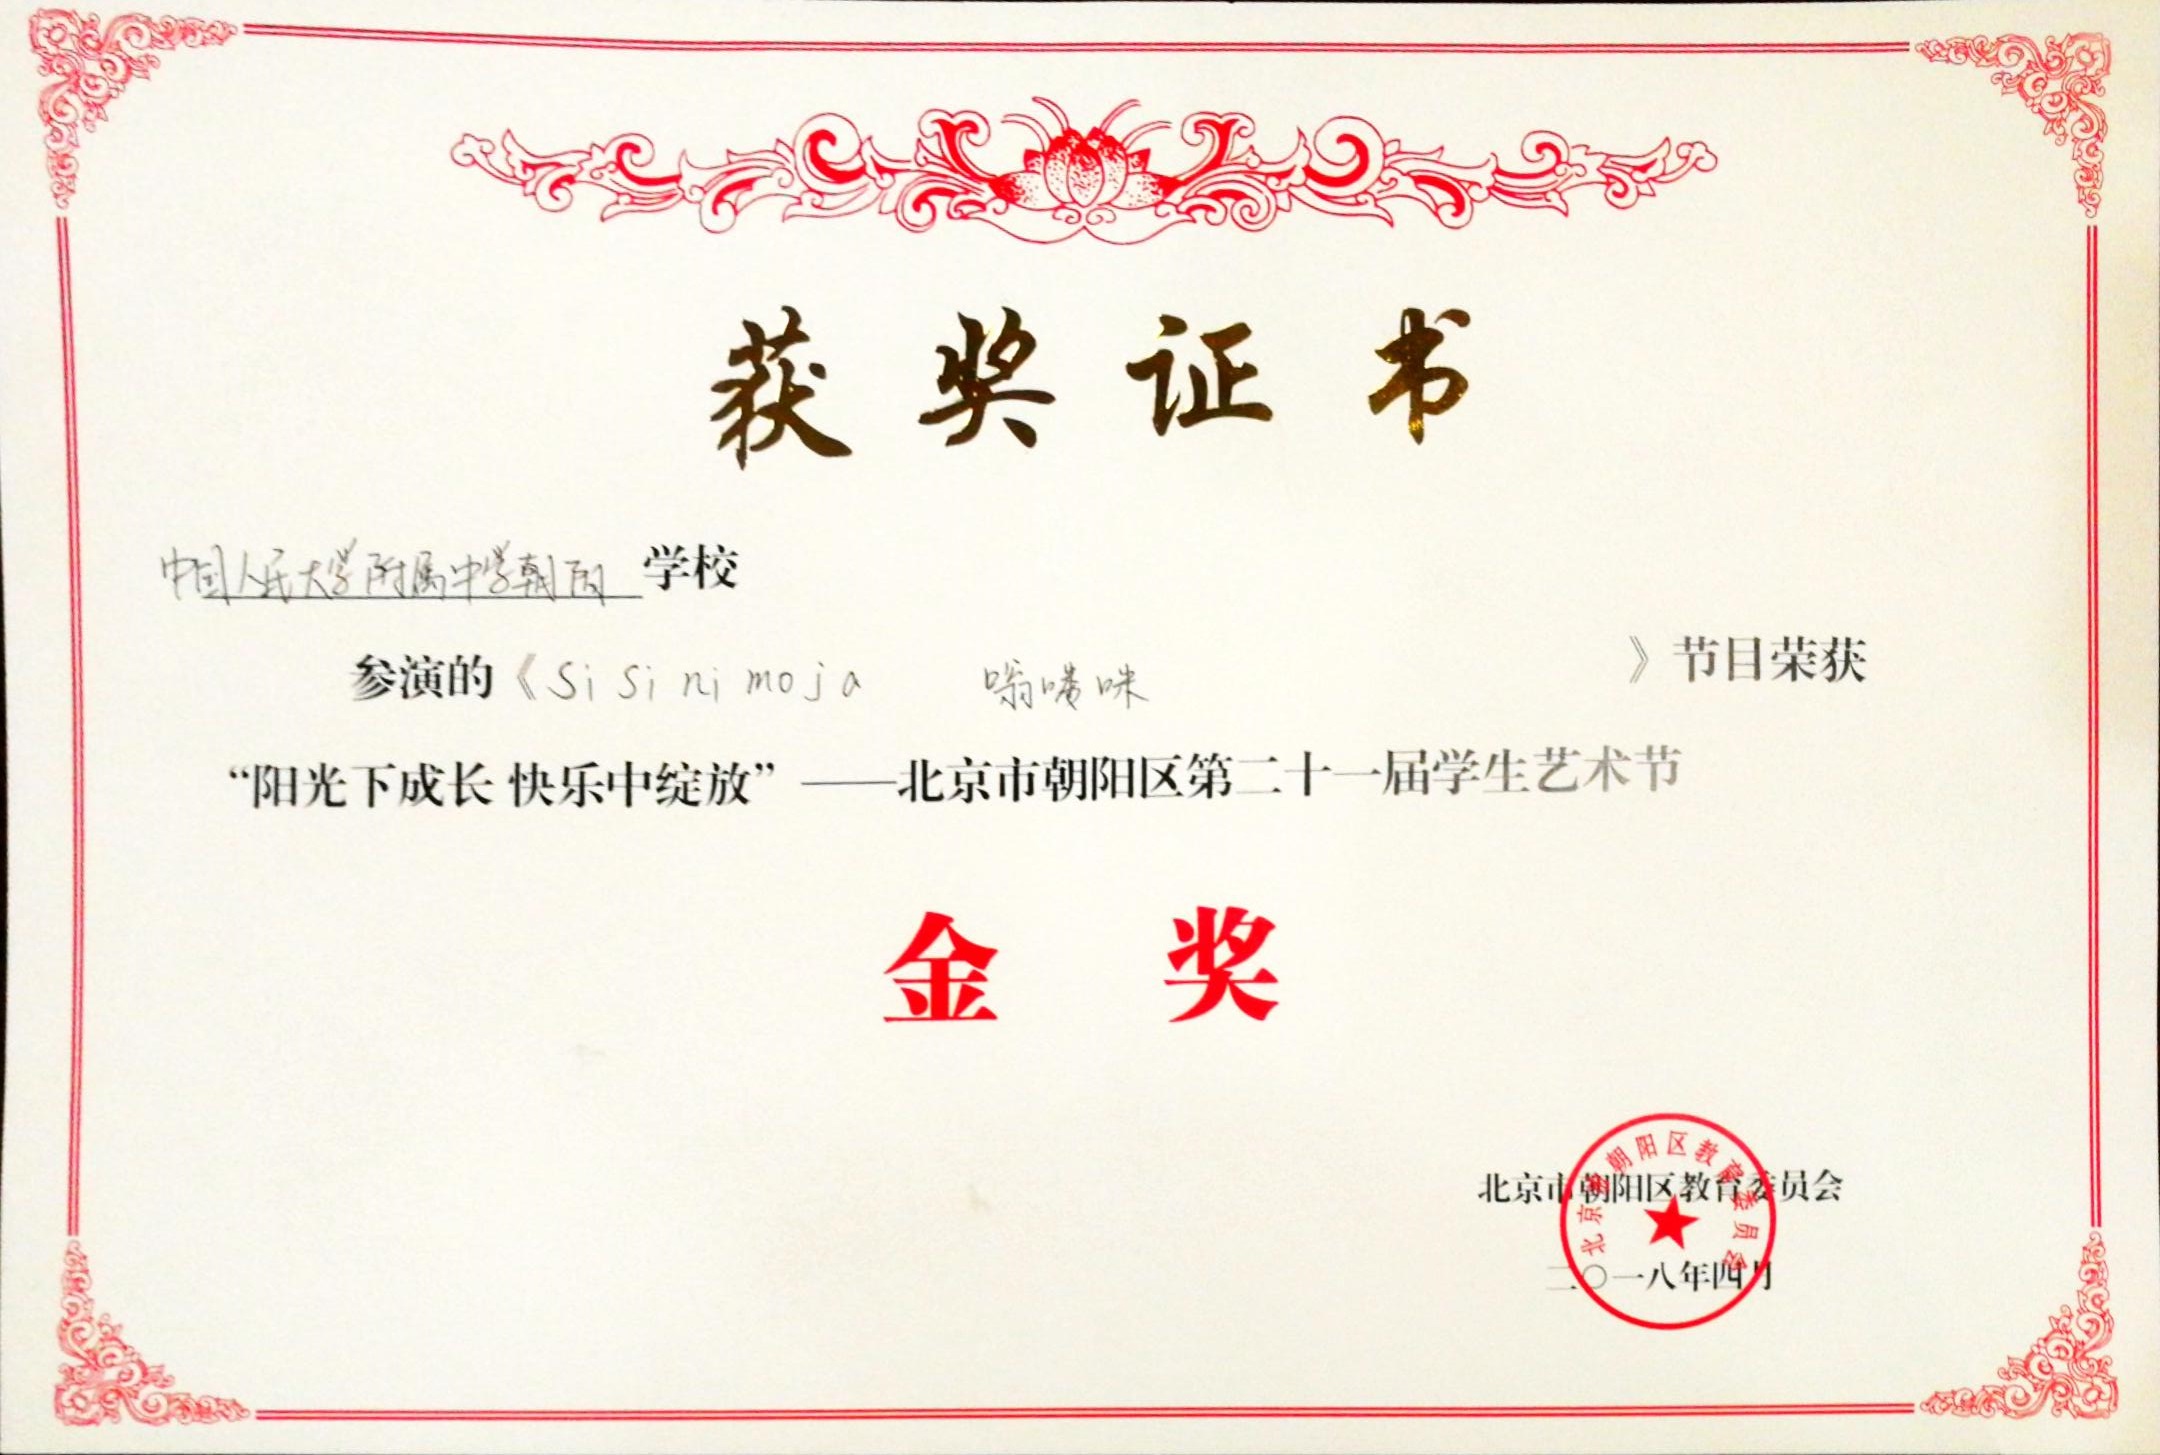 获奖证书
中国人民大学附属中学朝阳学校
参演的《Si Si ni moja 嗡嗒咪》节目荣获
“阳光下成长 快乐中绽放”——北京市朝阳区第二十一届学生艺术节
金奖
北京市朝阳区教育委员会
二〇一八年四月
北京市朝阳区教育委员会